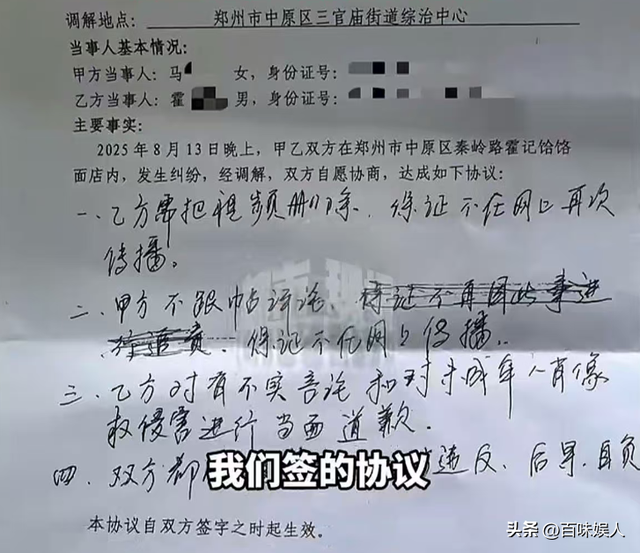 调解地点：郑州市中原区三官庙街道综治中心
当事人基本情况：
甲方当事人：马 女，身份证号：
乙方当事人：霍 男，身份证号：
主要事实：
2025年8月13日晚上，甲乙双方在郑州市中原区秦岭路霍记饸饹
面店内，发生纠纷，经调解，双方自愿协商，达成如下协议：
一、乙方需把视频删除，保证不在网上再次
传播。
二、甲方不跟帖评论、保证不再因此事进
追责、保证不在网上传播。
三、乙方对有不实言论和对未成年人肖像
权侵害进行当面道歉。
四、双方都 违反、后果自负
我们签的协议
本协议自双方签字之时起生效。
头条 @百味娱人